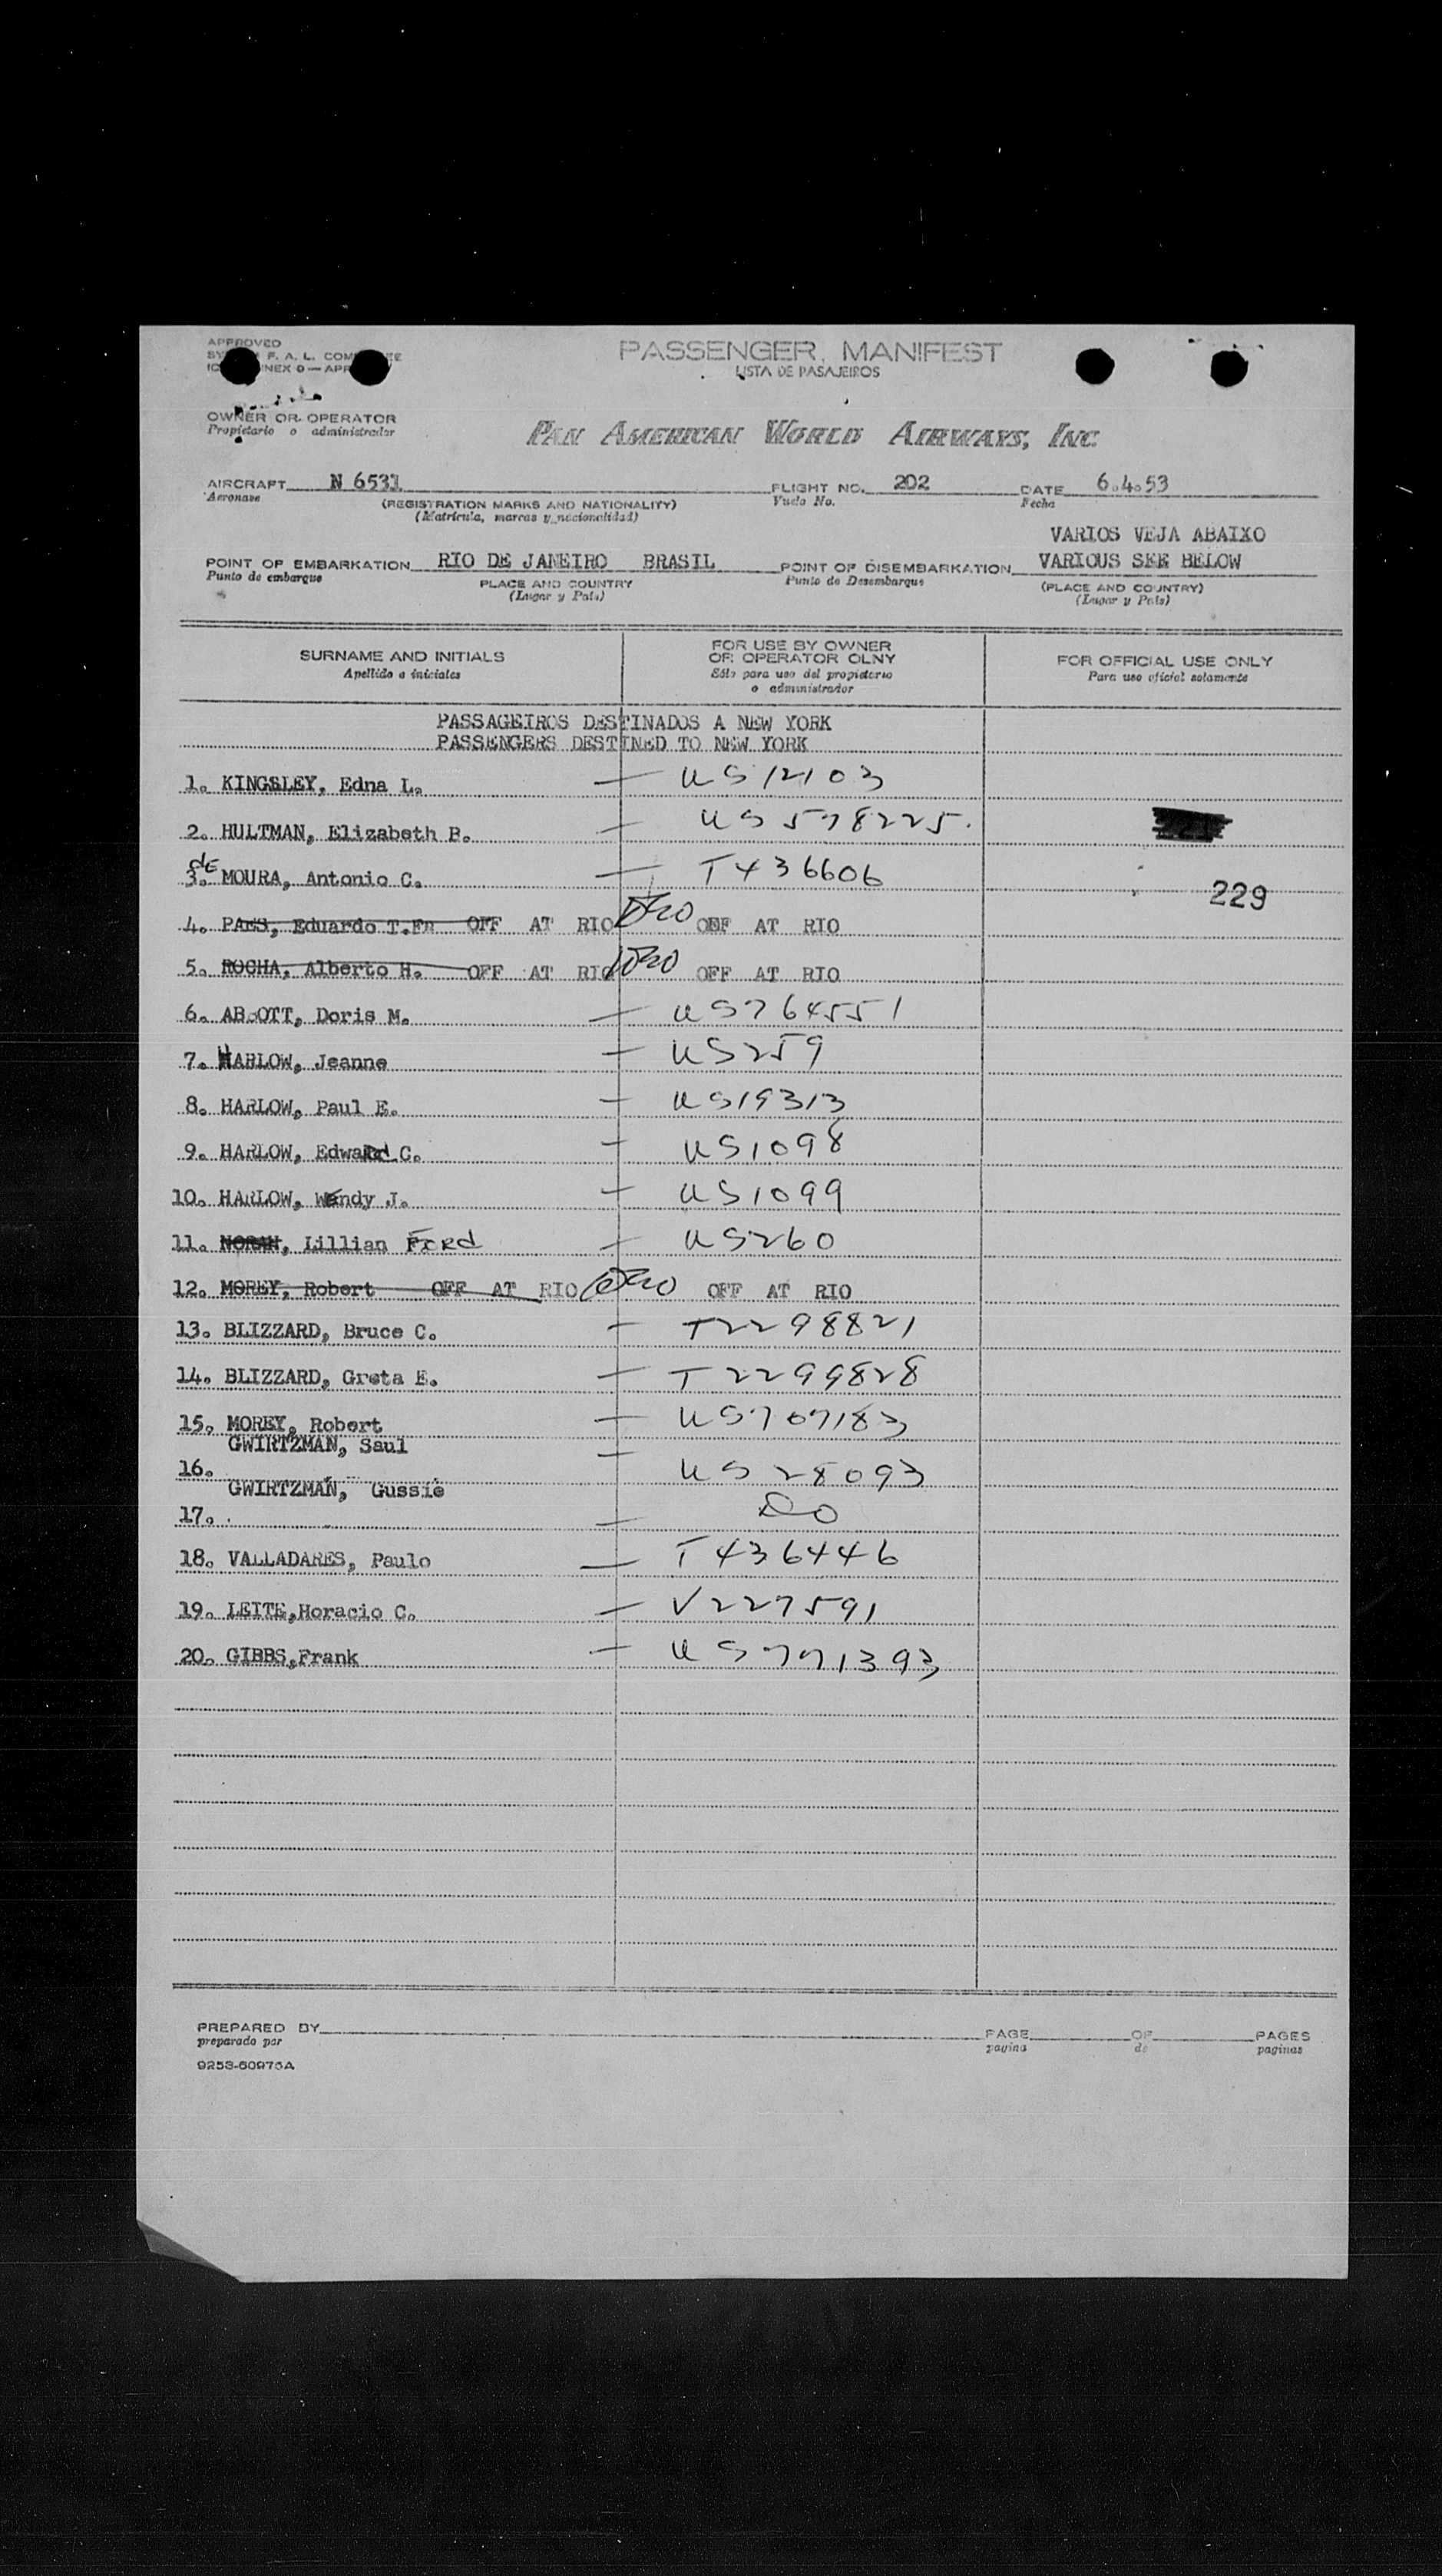 APPROVED
PASSENGER MANIFEST
LISTA DE PASAJEIROS
OWNER OR OPERATOR
Propietario o administrador
PAN AMERICAN WORLD AIRWAYS, INC
AIRCRAFT N 6531 FLIGHT NO. 202 DATE 6.4.53
Aeronave (REGISTRATION MARKS AND NATIONALITY) Vuelo No. Fecha
(Matrícula, marcas y nacionalidad)
VARIOS VEJA ABAIXO
POINT OF EMBARKATION RIO DE JANEIRO BRASIL POINT OF DISEMBARKATION VARIOUS SEE BELOW
Punto de embarque PLACE AND COUNTRY Punto de Desembarque (PLACE AND COUNTRY)
(Lugar y País) (Lugar y País)
SURNAME AND INITIALS FOR USE BY OWNER OR OPERATOR OLNY FOR OFFICIAL USE ONLY
Apellido e iniciales Sólo para uso del propietario o administrador Para uso oficial solamente
PASSAGEIROS DESTINADOS A NEW YORK
PASSENGERS DESTINED TO NEW YORK
1. KINGSLEY, Edna L. — US12103
2. HULTMAN, Elizabeth B. — US578225.
3. de MOURA, Antonio C. — T436606
229
4. PAES, Eduardo T.Fn OFF AT RIO OFF AT RIO
5. ROCHA, Alberto H. OFF AT RIO OFF AT RIO
6. ABBOTT, Doris M. — US764551
7. HARLOW, Jeanne — US259
8. HARLOW, Paul E. — US19313
9. HARLOW, Edward C. — US1098
10. HARLOW, Wendy J. — US1099
11. Lillian Ford — US260
12. MOREY, Robert OFF AT RIO OFF AT RIO
13. BLIZZARD, Bruce C. — T2298821
14. BLIZZARD, Greta E. — T2299828
15. MOREY, Robert — US707183
GWIRTZMAN, Saul —
16. US28093
GWIRTZMAN, Gussie
17. — Do
18. VALLADARES, Paulo — T436446
19. LEITE,Horacio C. — V227591
20. GIBBS,Frank — US771393
PREPARED BY PAGE OF PAGES
preparado por pagina de paginas
9253-60975A